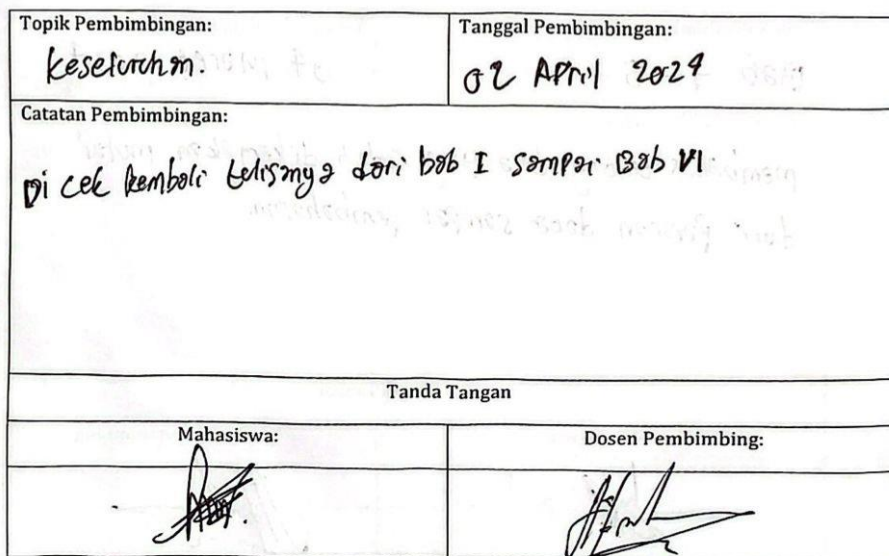 Topik Pembimbingan:
Keseluruhan.
Tanggal Pembimbingan:
02 April 2024
Catatan Pembimbingan:
Di cek kembali tulisnnya dari bab I sampai Bab VI
Tanda Tangan
Mahasiswa:
Dosen Pembimbing: